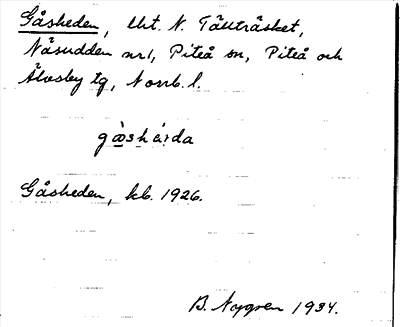 Gåsheden, utst. N. Tällträsket,
Näsudden nr 1, Piteå sn, Piteå och
Älvsby tg, Norrb. l.
gåshèda
Gåsheden, kb. 1926.
B. Nygren 1934.